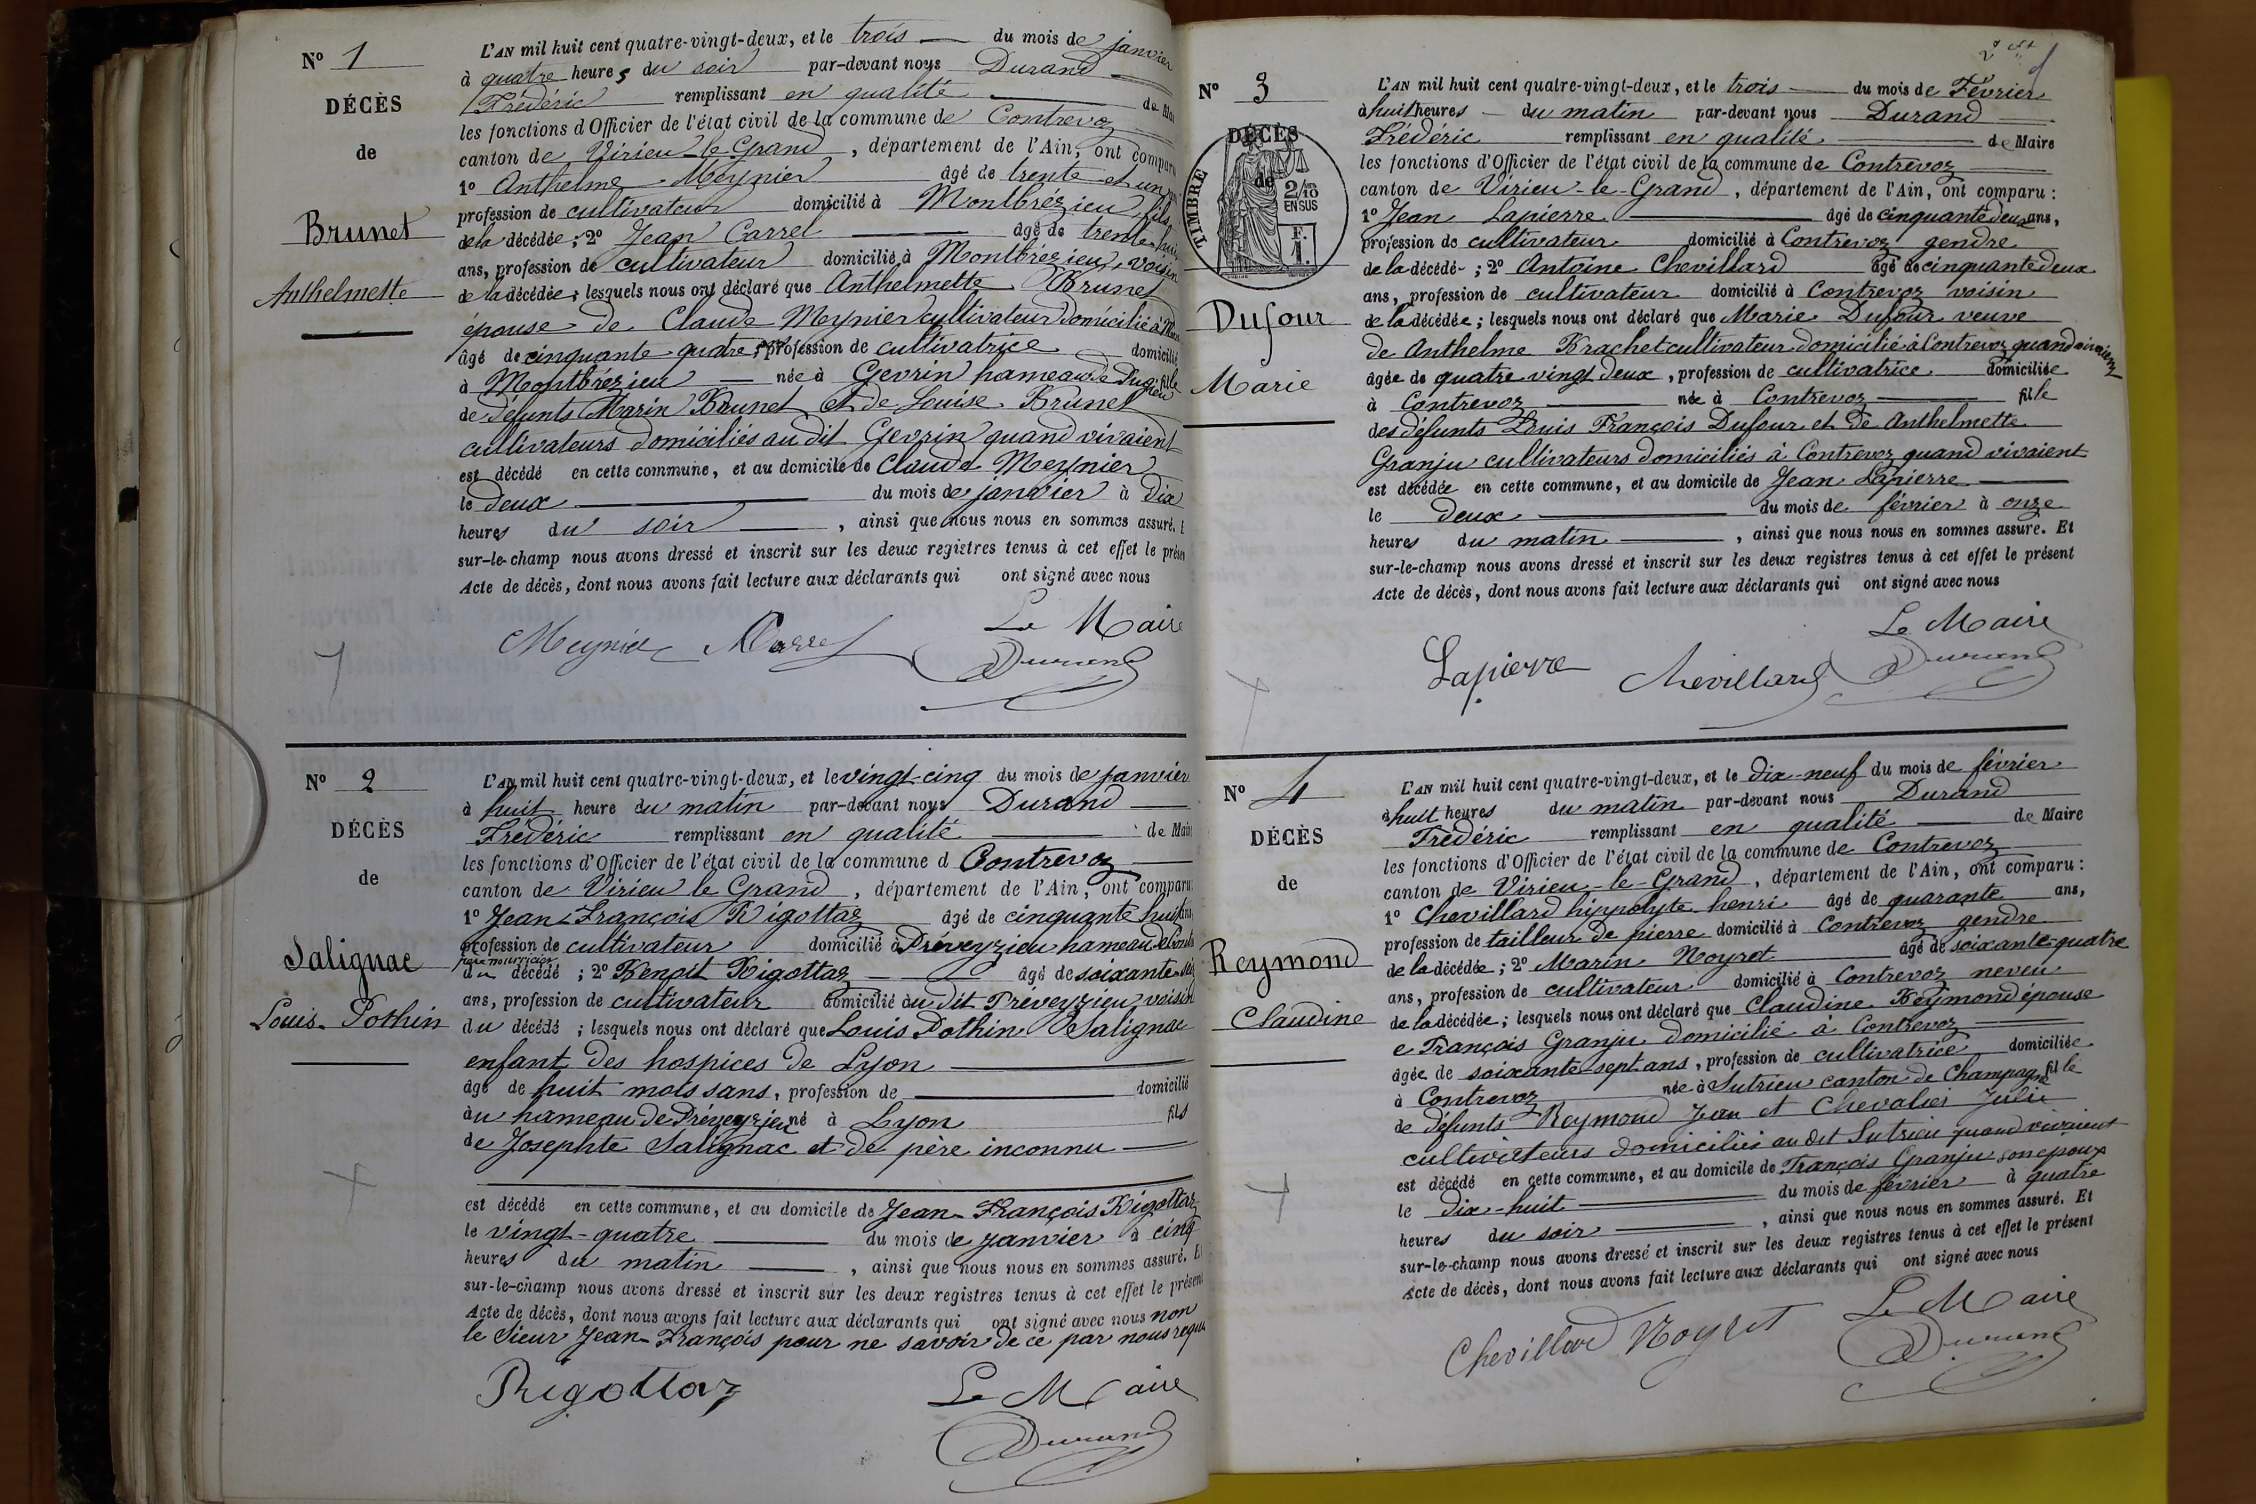 N° 1
DÉCÈS
de
Brunet
Anthelmette
L'AN mil huit cent quatre-vingt-deux, et le trois du mois de janvier
à quatre heures du soir par-devant nous Durand
Frédéric remplissant en qualité de Mai
les fonctions d'Officier de l'état civil de la commune de Contrevoz
canton de Virieu-le-Grand, département de l'Ain, ont comparu
1° Anthelme Meynier âgé de trente et un
profession de cultivateur domicilié à Montbrézieu, fils
de la décédée; 2° Jean Carrel âgé de trente huit
ans, profession de cultivateur domicilié à Montbrézieu, voisin
de la décédée; lesquels nous ont déclaré que Anthelmette Brunet
épouse de Claude Meynier cultivateur domicilié à
âgé de cinquante quatre, profession de cultivatrice domicilié
à Montbrézieu née à Gevrin hameau de Pugieu fille
de défunts Marin Brunet et de Louise Brunet
cultivateurs domiciliés au dit Gevrin quand vivaient
est décédé en cette commune, et au domicile de Claude Meynier
le deux du mois de janvier à dix
heures du soir, ainsi que nous nous en sommes assuré. E
sur-le-champ nous avons dressé et inscrit sur les deux registres tenus à cet effet le présen
Acte de décès, dont nous avons fait lecture aux déclarants qui ont signé avec nous
Le Maire
Meynier Carrel Durand
N° 2
DÉCÈS
de
Salignac
Louis Pothin
L'AN mil huit cent quatre-vingt-deux, et le vingt-cinq du mois de janvier
à huit heure du matin par-devant nous Durand
Frédéric remplissant en qualité de Mai
les fonctions d'Officier de l'état civil de la commune d Contrevoz
canton de Virieu le Grand, département de l'Ain, ont comparu
1° Jean-François Rigottaz âgé de cinquante huit ans
profession de cultivateur domicilié à Préveyzieu hameau de
père nourricier
du décédé; 2° Benoit Rigottaz âgé de soixante
ans, profession de cultivateur domicilié au dit Préveyzieu, voisin
du décédé; lesquels nous ont déclaré que Louis Pothin Salignac
enfant des hospices de Lyon
âgé de huit mois sans, profession de domicilié
au hameau de Préveyzieu né à Lyon fils
de Josephte Salignac et de père inconnu
est décédé en cette commune, et au domicile de Jean-François Rigottaz
le vingt-quatre du mois de janvier à cinq
heures du matin, ainsi que nous nous en sommes assuré. E
sur-le-champ nous avons dressé et inscrit sur les deux registres tenus à cet effet le présent
Acte de décès, dont nous avons fait lecture aux déclarants qui ont signé avec nous non
le sieur Jean-François pour ne savoir de ce par nous requis
Rigottaz Le Maire
Durand
N° 3
DÉCÈS
de
TIMBRE
2/10
EN SUS
F.
1.
Dufour
Marie
L'AN mil huit cent quatre-vingt-deux, et le trois du mois de Février
à huit heures du matin par-devant nous Durand
Frédéric remplissant en qualité de Maire
les fonctions d'Officier de l'état civil de la commune de Contrevoz
canton de Virieu-le-Grand, département de l'Ain, ont comparu:
1° Jean Lapierre âgé de cinquante deux ans,
profession de cultivateur domicilié à Contrevoz gendre
de la décédé; 2° Antoine Chevillard âgé de cinquante deux
ans, profession de cultivateur domicilié à Contrevoz voisin
de la décédée; lesquels nous ont déclaré que Marie Dufour veuve
de Anthelme Brachet cultivateur domicilié à Contrevoz quand vivaient
âgée de quatre vingt deux, profession de cultivatrice domiciliée
à Contrevoz née à Contrevoz fille
des défunts Louis François Dufour et de Anthelmette
Granju cultivateurs domiciliés à Contrevoz quand vivaient
est décédée en cette commune, et au domicile de Jean Lapierre
le deux du mois de février à onze
heures du matin, ainsi que nous nous en sommes assuré. Et
sur-le-champ nous avons dressé et inscrit sur les deux registres tenus à cet effet le présent
Acte de décès, dont nous avons fait lecture aux déclarants qui ont signé avec nous
Le Maire
Lapierre Chevillard Durand
N° 4
DÉCÈS
de
Reymond
Claudine
L'AN mil huit cent quatre-vingt-deux, et le dix-neuf du mois de février
à huit heures du matin par-devant nous Durand
Frédéric remplissant en qualité de Maire
les fonctions d'Officier de l'état civil de la commune de Contrevoz
canton de Virieu-le-Grand, département de l'Ain, ont comparu:
1° Chevillard hippolyte henri âgé de quarante ans,
profession de tailleur de pierre domicilié à Contrevoz gendre
de la décédée; 2° Marin Noyret âgé de soixante-quatre
ans, profession de cultivateur domicilié à Contrevoz neveu
de la décédée; lesquels nous ont déclaré que Claudine Reymond épouse
e François Granju domicilié à Contrevoz
âgée de soixante-sept ans, profession de cultivatrice domiciliée
à Contrevoz née à Sutrieu canton de Champagne fille
de défunts Reymond Jean et Chevalier Julie
cultivateurs domiciliés au dit Sutrieu quand vivaient
est décédé en cette commune, et au domicile de François Granju son époux
le dix-huit du mois de février à quatre
heures du soir, ainsi que nous nous en sommes assuré. Et
sur-le-champ nous avons dressé et inscrit sur les deux registres tenus à cet effet le présent
Acte de décès, dont nous avons fait lecture aux déclarants qui ont signé avec nous
Le Maire
Chevillard Noyret Durand